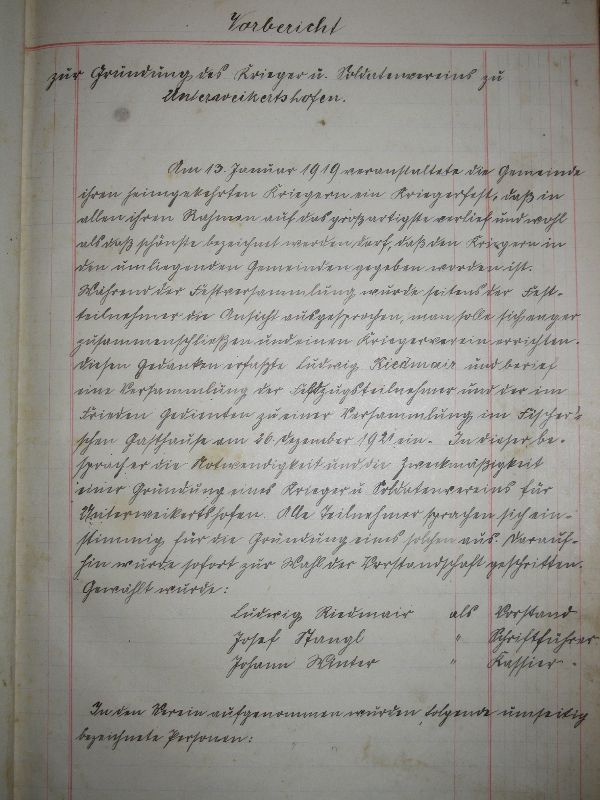 Vorbericht
zur Gründung des Krieger u. Soldatenvereins zu
Unterweikertshofen.
Am 13. Januar 1919 veranstaltete die Gemeinde
ihren heimgekehrten Kriegern ein Kriegerfest, daß in
allen ihren Rahmen auf das großartigste verlief und wohl
als daß schönste bezeichnet werden darf, daß den Kriegern in
den umliegenden Gemeinden gegeben worden ist.
Während der Festversammlung wurde seitens der Fest-
teilnehmer die Ansicht ausgesprochen, man solle sich enger
zusammenschließen und einen Kriegerverein errichten.
Diesen Gedanken erfaßte Ludwig Riedmair und berief
eine Versammlung der Feldzugsteilnehmer und der im
Frieden Gedienten zu einer Versammlung im Fischer'-
schen Gasthause am 26. Dezember 1921 ein. In dieser be-
sprach er die Notwendigkeit und die Zweckmäßigkeit
einer Gründung eines Krieger u. Soldatenvereins für
Unterweikertshofen. Alle Teilnehmer sprachen sich ein-
stimmig für die Gründung eines solchen aus. Darauf-
hin wurde sofort zur Wahl der Vorstandschaft geschritten.
Gewählt wurde:
Ludwig Riedmair als Vorstand
Josef Stangl " Schriftführer
Johann Winter " Kassier.
In den Verein aufgenommen wurden folgende umseitig
bezeichnete Personen: